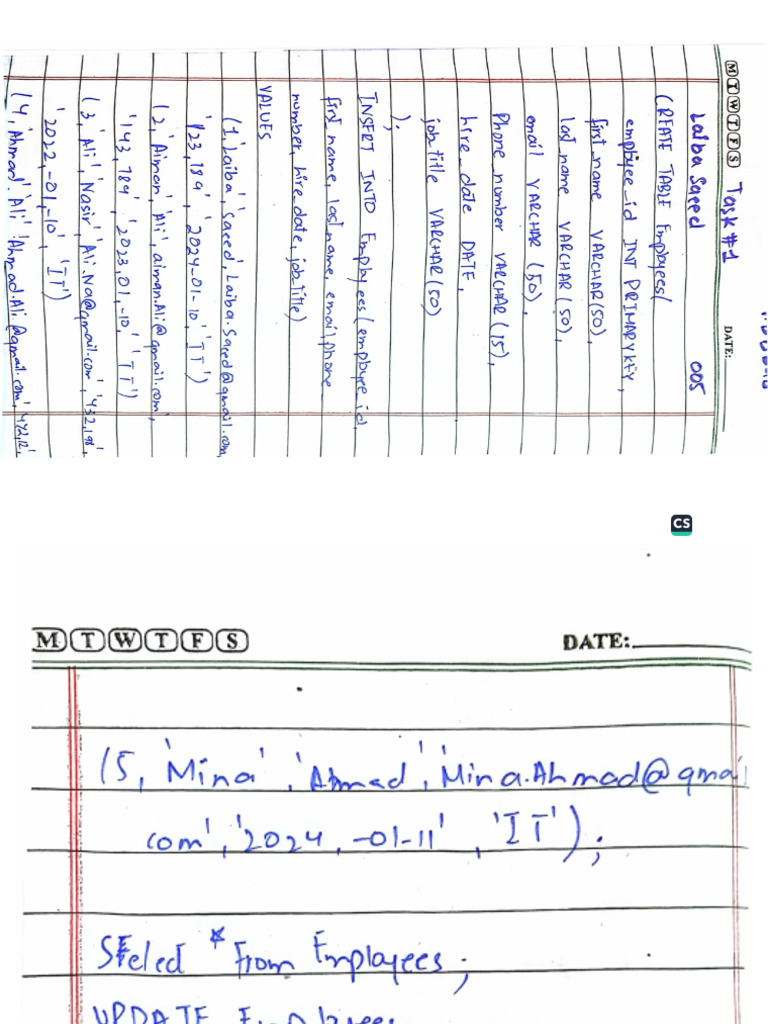 M T W T F S Task #1 DATE:
Laiba Saeed 005
CREATE TABLE Employees(
employee_id INT PRIMARY KEY,
first_name VARCHAR(50),
last_name VARCHAR(50),
email VARCHAR (50),
Phone_number VARCHAR(15),
hire_date DATE,
job_title VARCHAR(50)
);
INSERT INTO Employees(employee_id,
first_name, last_name, email, phone
number, hire_date, job_title)
VALUES
(1,'Laiba', 'saeed', Laiba.Saeed@gmail.com,
'123,189', '2024-01-10', 'IT')
(2, 'Aiman', 'Ali', aiman.Ali@gmail.com',
'143,789', '2023,01,-10', 'IT')
(3, 'Ali', 'Nasir', 'Ali.Na@gmail.com', '432,198'
'2022,-01,-10', 'IT')
(4, 'Ahmad'. 'Ali' 'Ahmad.Ali.@gmail.com',
CS
M T W T F S DATE:
(5, 'Mina', 'Ahmad', 'Mina.Ahmad@gmail
com', '2024,-01-11', 'IT');
Seled * From Employees;
UPDATE Employees